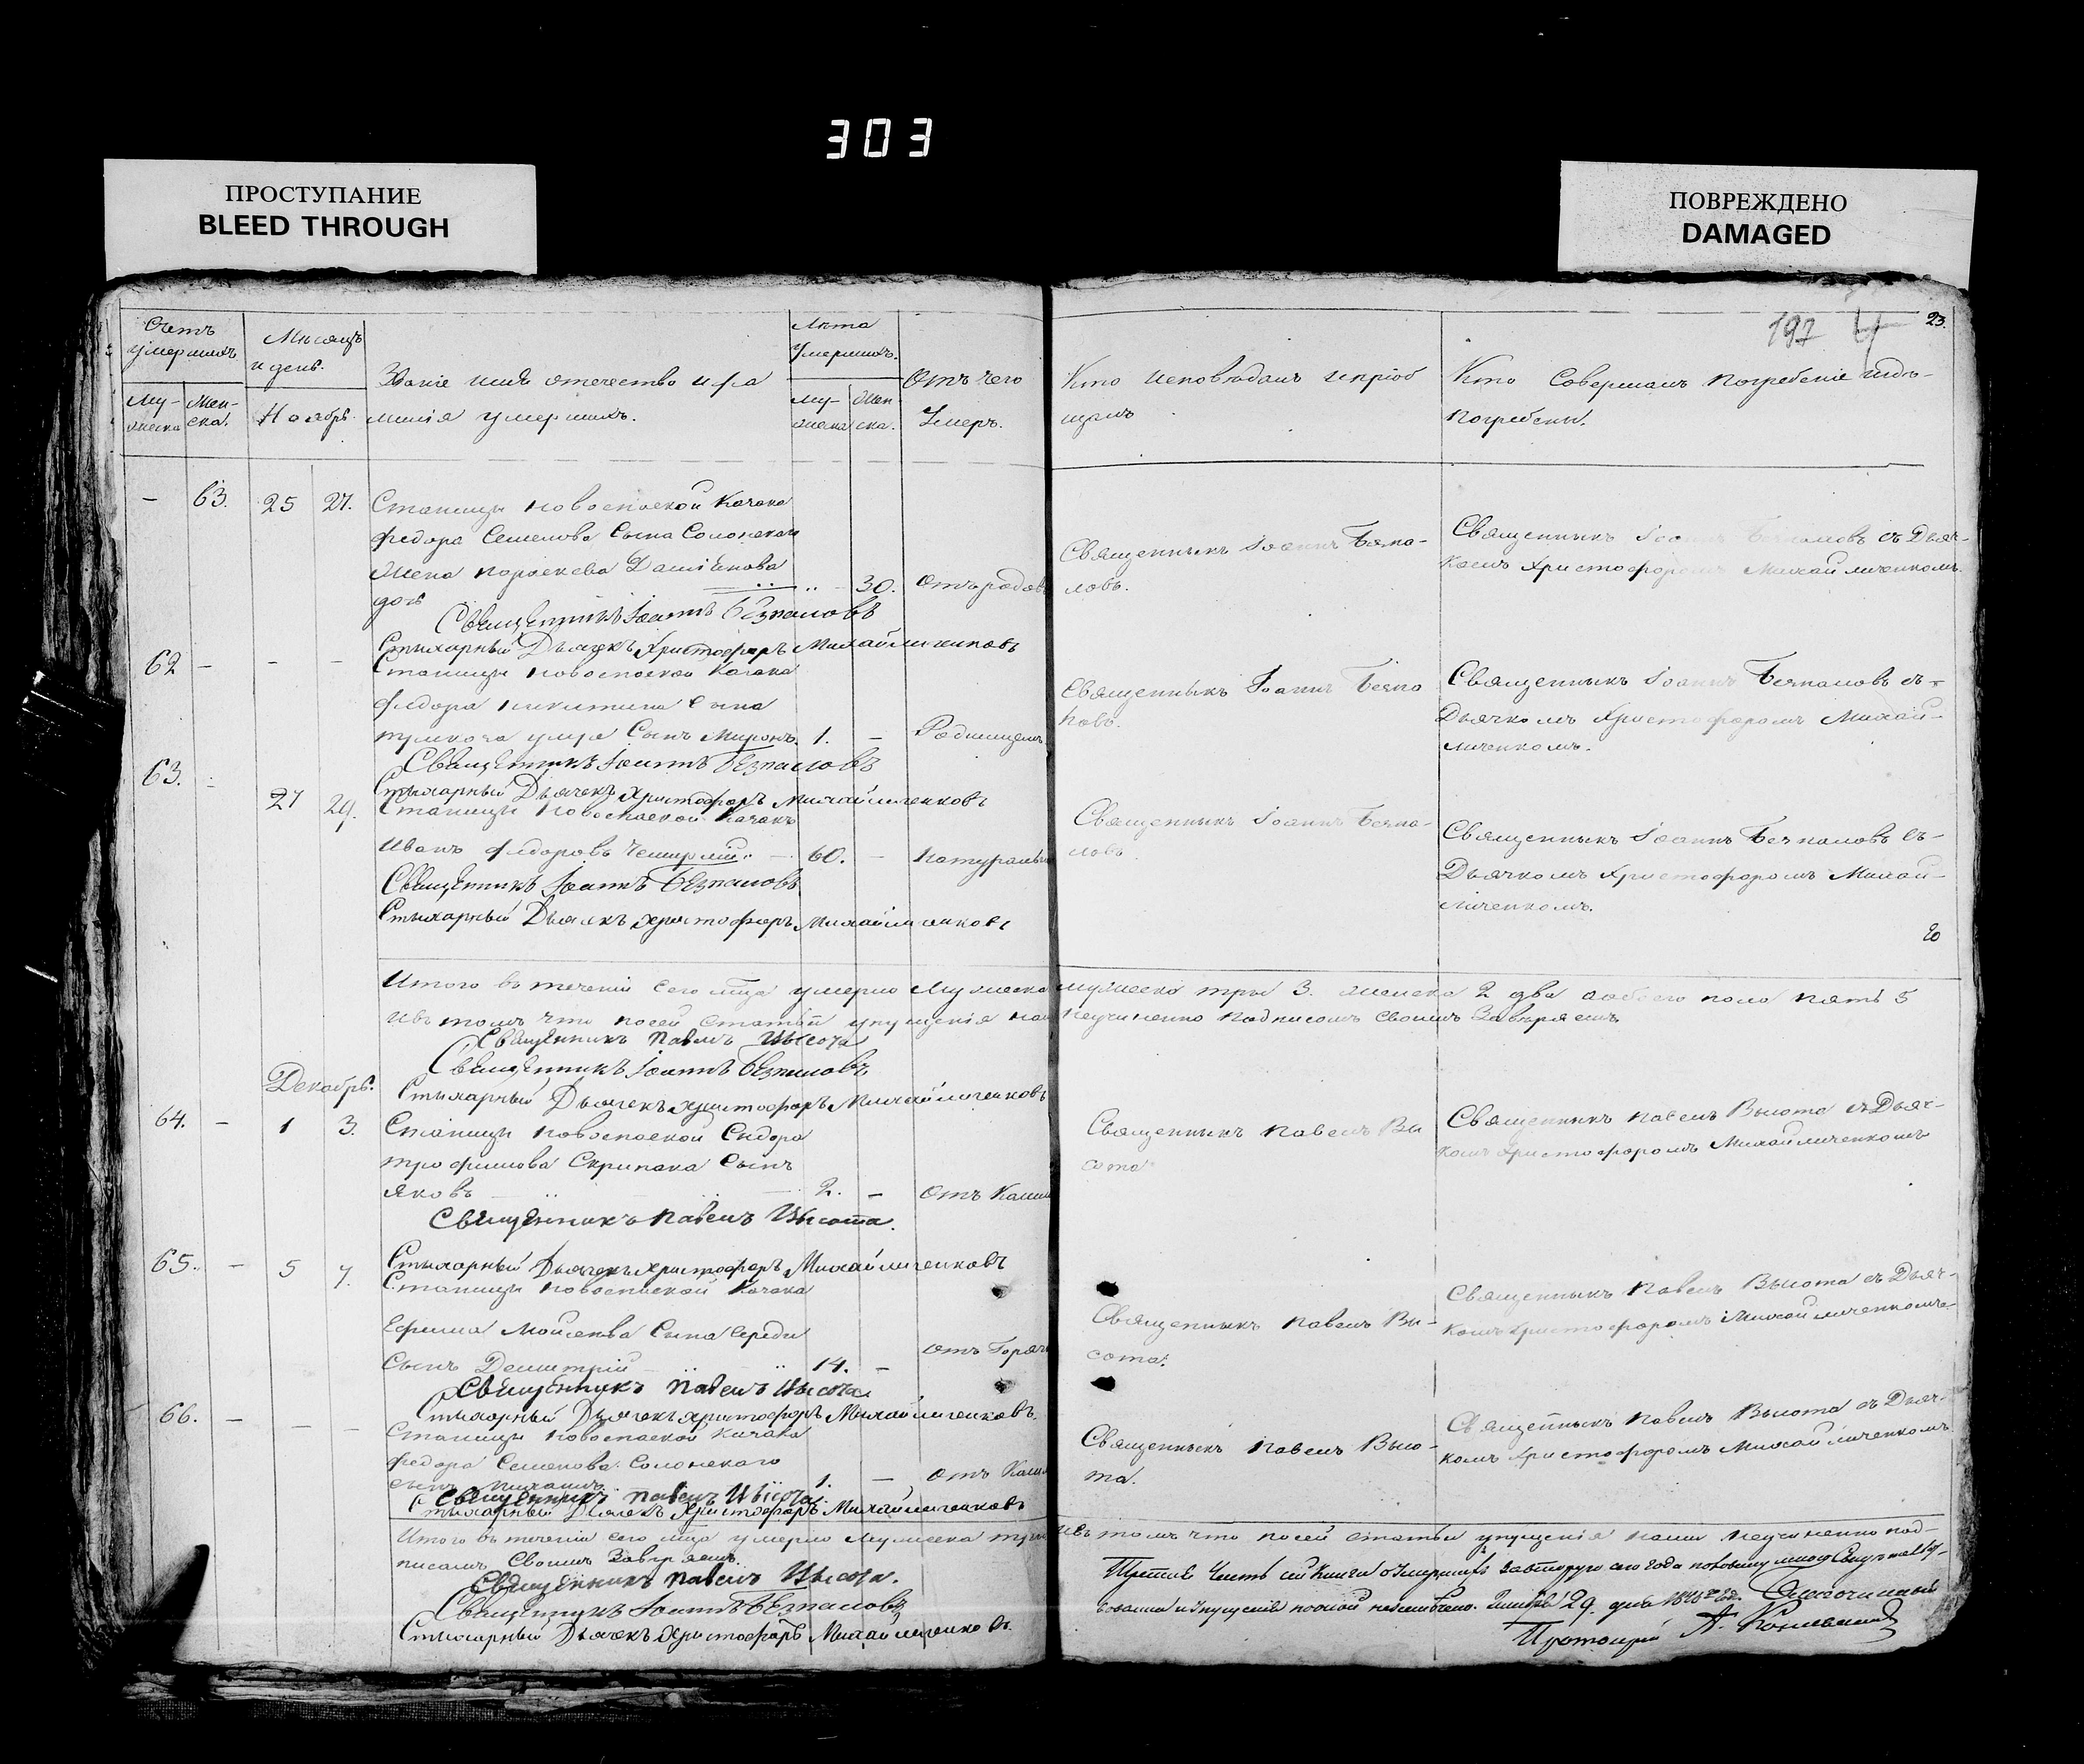 303
ПРОСТУПАНИЕ
BLEED THROUGH
ПОВРЕЖДЕНО
DAMAGED
Счетъ
умершихъ
Му-
жеска
Жен-
ска.
Мѣсяцъ
и день.
Ноябрь.
Званіе имя отечество и фа
милія умершихъ.
Лѣта
Умершихъ.
Му-
жеска
Жен-
ска.
Отъ чего
Умеръ.
Кто исповѣдалъ и пріоб
щалъ
Кто Совершалъ погребеніе и гдѣ-
погребены.
197
23.
– 63. 25 27. Станицы Новоспаской Козака
Федора Семенова Сына Солонскаго
Жена Параскева
дочь 30. Отъ родовъ
Священникъ Іоаннъ Безпа-
ловъ.
Священникъ Іоаннъ Безпаловъ съ Дьяч-
комъ Христофоромъ Михайличенкомъ.
Священникъ Іоаннъ Безпаловъ
Стихарный Дьячекъ Христофоръ Михайличенковъ
62 – – – Станицы Новоспаской Козака
Федора Никитина Сына
умре Сынъ Миронъ. 1. – Родимцемъ
Священникъ Іоаннъ Безпа
ловъ.
Священникъ Іоаннъ Безпаловъ съ-
Дьячкомъ Христофоромъ Михай-
личенкомъ.
Священникъ Іоаннъ Безпаловъ
Стихарный Дьячекъ Христофоръ Михайличенковъ
63. 27 29. Станицы Новоспаской Козакъ
Иванъ Федоровъ 60. – Натурально
Священникъ Іоаннъ Безпа-
ловъ.
Священникъ Іоаннъ Безпаловъ съ-
Дьячкомъ Христофоромъ Михай-
личенкомъ.
Священникъ Іоаннъ Безпаловъ
Стихарный Дьячекъ Христофоръ Михайличенковъ
Итого въ теченіи сего мца умерло Мужеска мужеска три 3. женска 2 два обоего пола пять 5
и въ томъ что посей статьи упущенія нами неучиненно подписомъ своимъ Завѣряемъ
Священникъ Павелъ Высота
Священникъ Іоаннъ Безпаловъ
Стихарный Дьячекъ Христофоръ Михайличенковъ
Декабрь.
64. – 1 3. Станицы Новоспаской Сидора
Трофимова Скрипака Сынъ
Яковъ 2. – Отъ Кашля
Священникъ Павелъ Вы
сота
Священникъ Павелъ Высота съ Дьяч-
комъ Христофоромъ Михайличенкомъ
Священникъ Павелъ Высота.
Стихарный Дьячекъ Христофоръ Михайличенковъ
65. – 5 7. Станицы Новоспаской Козака
Ефима Моисеева Сына Середы
Сынъ Димитрій 14. – Отъ Горяч
Священникъ Павелъ Вы-
сота.
Священникъ Павелъ Высота съ Дьяч-
комъ Христофоромъ Михайличенкомъ
Священникъ Павелъ Высота
Стихарный Дьячекъ Христофоръ Михайличенковъ.
66. – – – Станицы Новоспаской Козака
Федора Семенова Солонскаго
сынъ 1. – Отъ Кашля
Священникъ Павелъ Высо-
та.
Священникъ Павелъ Высота съ Дьяч-
комъ Христофоромъ Михайличенкомъ
Священникъ Павелъ Высота
Стихарный Дьячекъ Христофоръ Михайличенковъ
Итого въ теченіи сего мца умерло Мужеска три и въ томъ что посей статьи упущенія нами неучиненно под-
писомъ своимъ Завѣряемъ.
Священникъ Павелъ Высота.
Священникъ Іоаннъ Безпаловъ
Стихарный Дьячекъ Христофоръ Михайличенковъ.
29. дня
Благочинный
Протоіерей А.